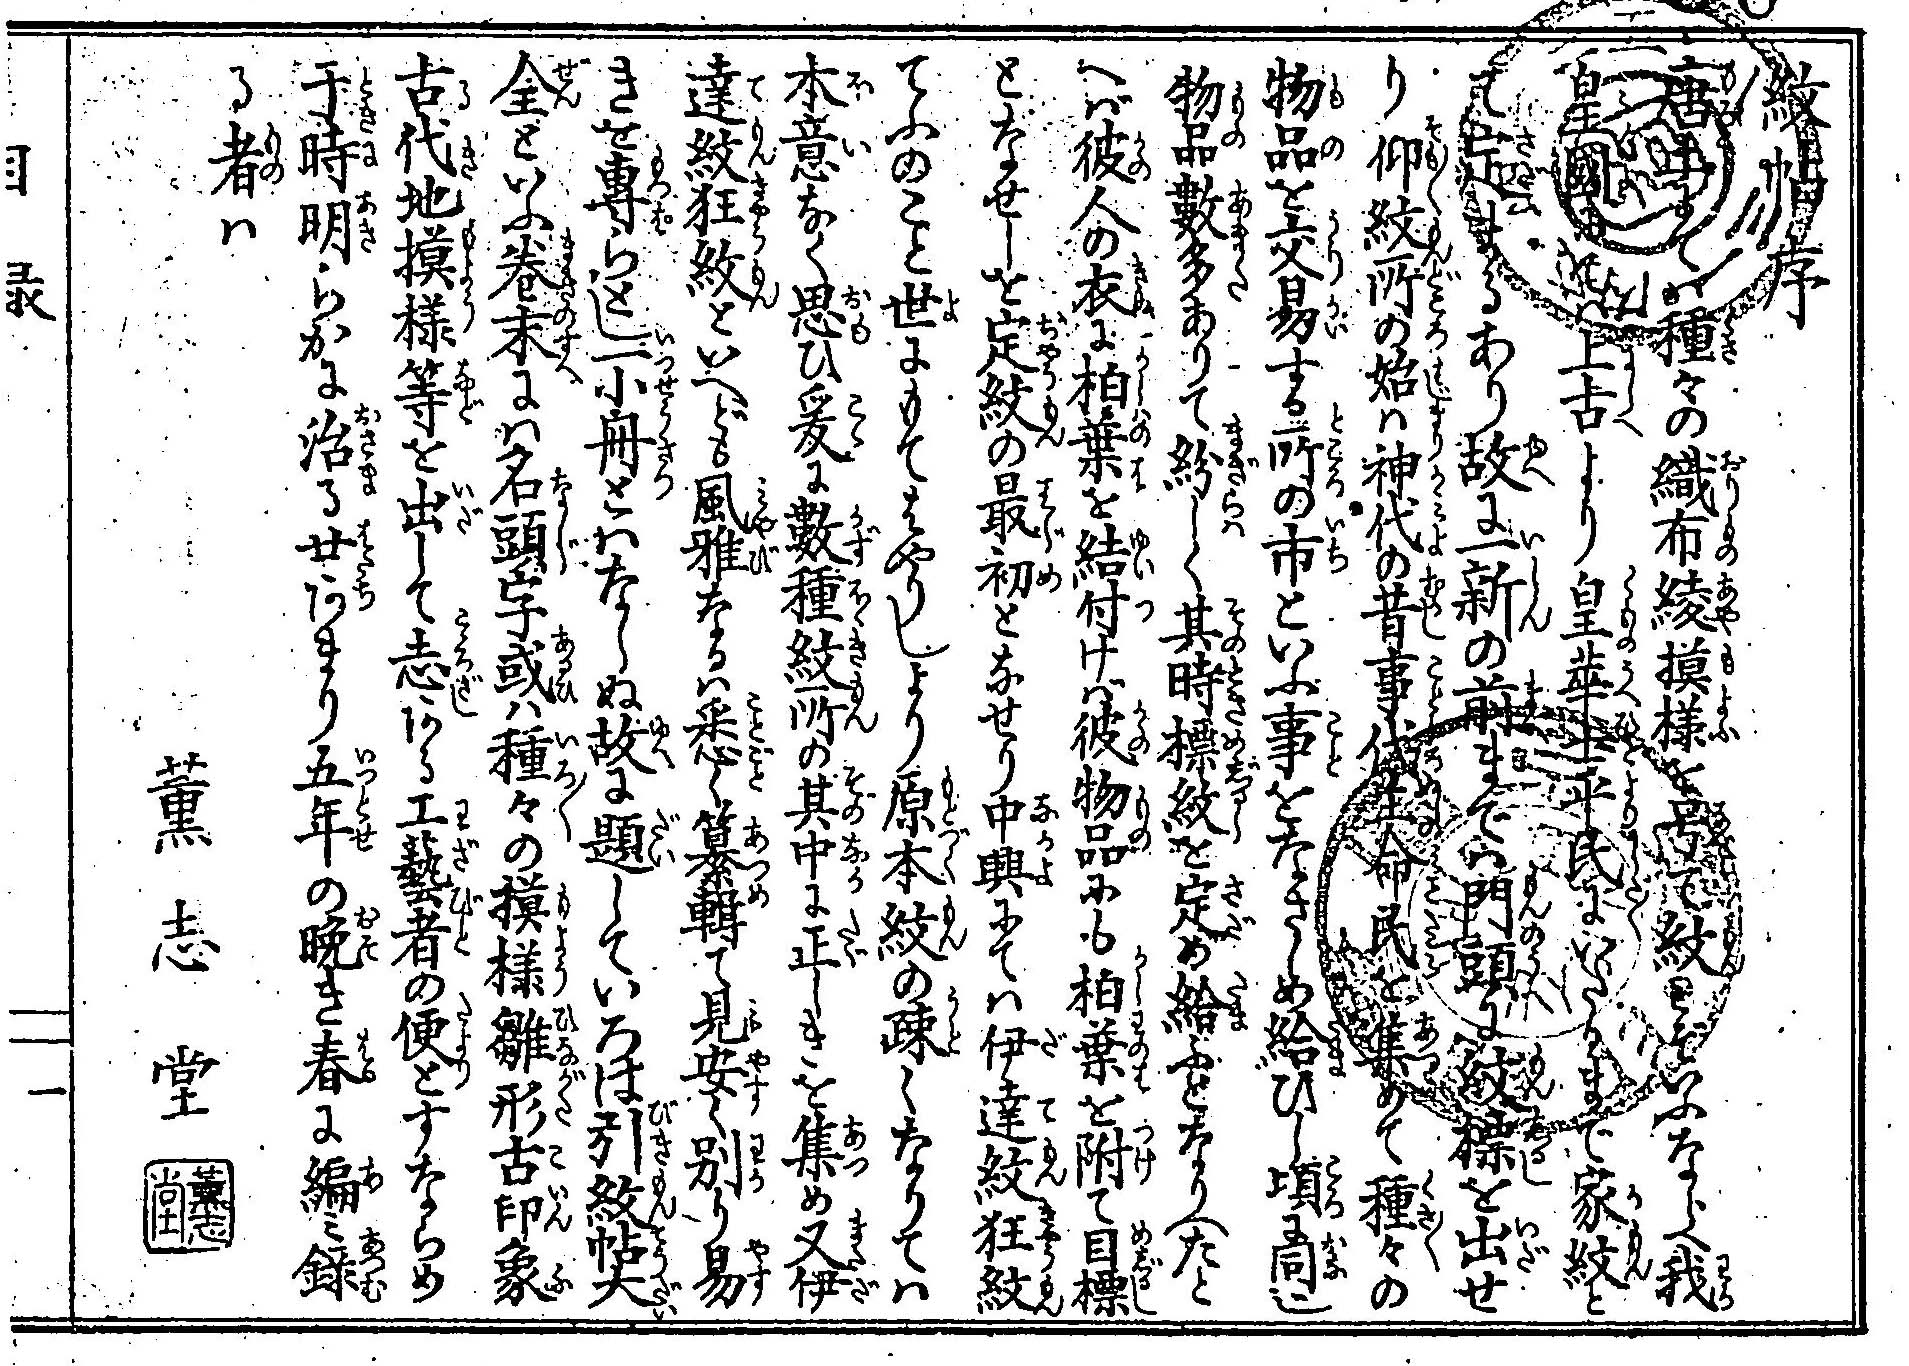 紋帖序
唐土まてハ種々の織布綾摸様を号て紋とそいふなるへし我
皇國ハ上古より皇華士平民にいたりまで家紋と
て定せるあり故に一新の前までハ門頭に紋標を出せ
り仰紋所の始ハ神代の昔事代主命民を集めて種々の
物品を交易する所の市といふ事をなさしめ給ひし頃同
物品數多ありて紛しく其時標紋を定め給ふとなり（たと
へバ彼人の衣に柏葉を結付けバ彼物品にも柏葉を附て目標
となせしを定紋の最初となせり中興にてハ伊達紋狂紋
てふのこと世にもてはやりしより原本紋の疎くなりてハ
本意なく思ひ爰に數種紋所の其中に正しきを集め又伊
達紋狂紋といへども風雅なるハ悉く纂輯て見安く別り易
きを專らとし一小冊とハなしぬ故に題していろは引紋帖大
全といふ巻末にハ名頭字或ハ種々の摸様雛形古印象
古代地摸様等を出して志ある工藝者の便とすならめ
于時明らかに治る廿あまり五年の晩き春に編ミ録
る者ハ
薫志堂
薫志堂
目録
一